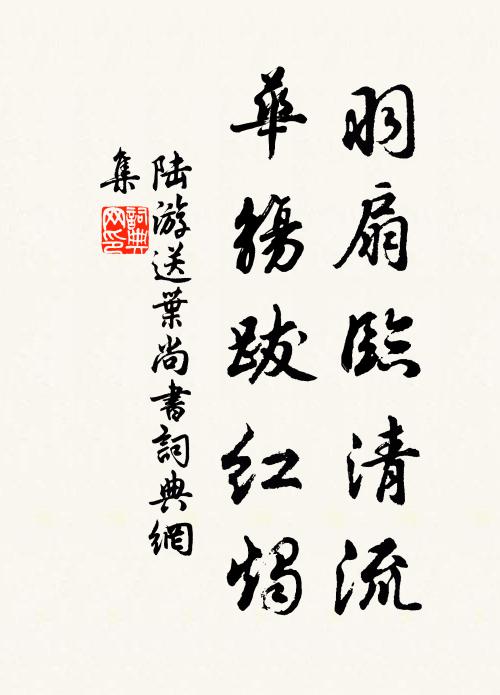 羽扇臨清流
華觴跋紅燭
陸游送葉尚書詞典網
集
詞典
网印